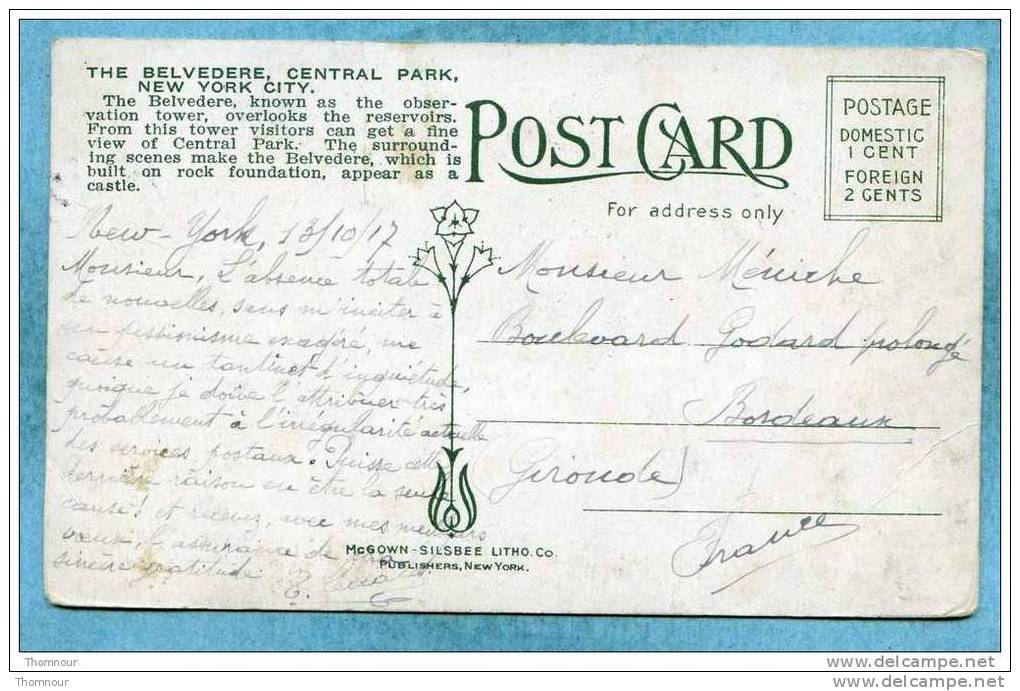 THE BELVEDERE, CENTRAL PARK,
NEW YORK CITY.
The Belvedere, known as the obser-
vation tower, overlooks the reservoirs.
From this tower visitors can get a fine
view of Central Park. The surround-
ing scenes make the Belvedere, which is
built on rock foundation, appear as a
castle.
POST CARD
For address only
POSTAGE
DOMESTIC
1 CENT
FOREIGN
2 CENTS
New-York, 13/10/17
Monsieur, L'absence totale
de nouvelles, sans m'inciter à
un pessimisme exagéré, me
cause un tantinet d'inquiétude,
quoique je doive l'attribuer très
probablement à l'irrégularité actuelle
des services postaux. Puisse cette
dernière raison en être la seule
cause! et recevez, avec mes meilleurs
voeux, l'assurance de ma
sincère gratitude
Monsieur Méniche
Boulevard Godard polongé
Bordeaux
Gironde)
France
McGOWN-SILSBEE LITHO. CO.
PUBLISHERS, NEW YORK.
Thomnour
Thomnour
www.delcampe.net
www.delcampe.net